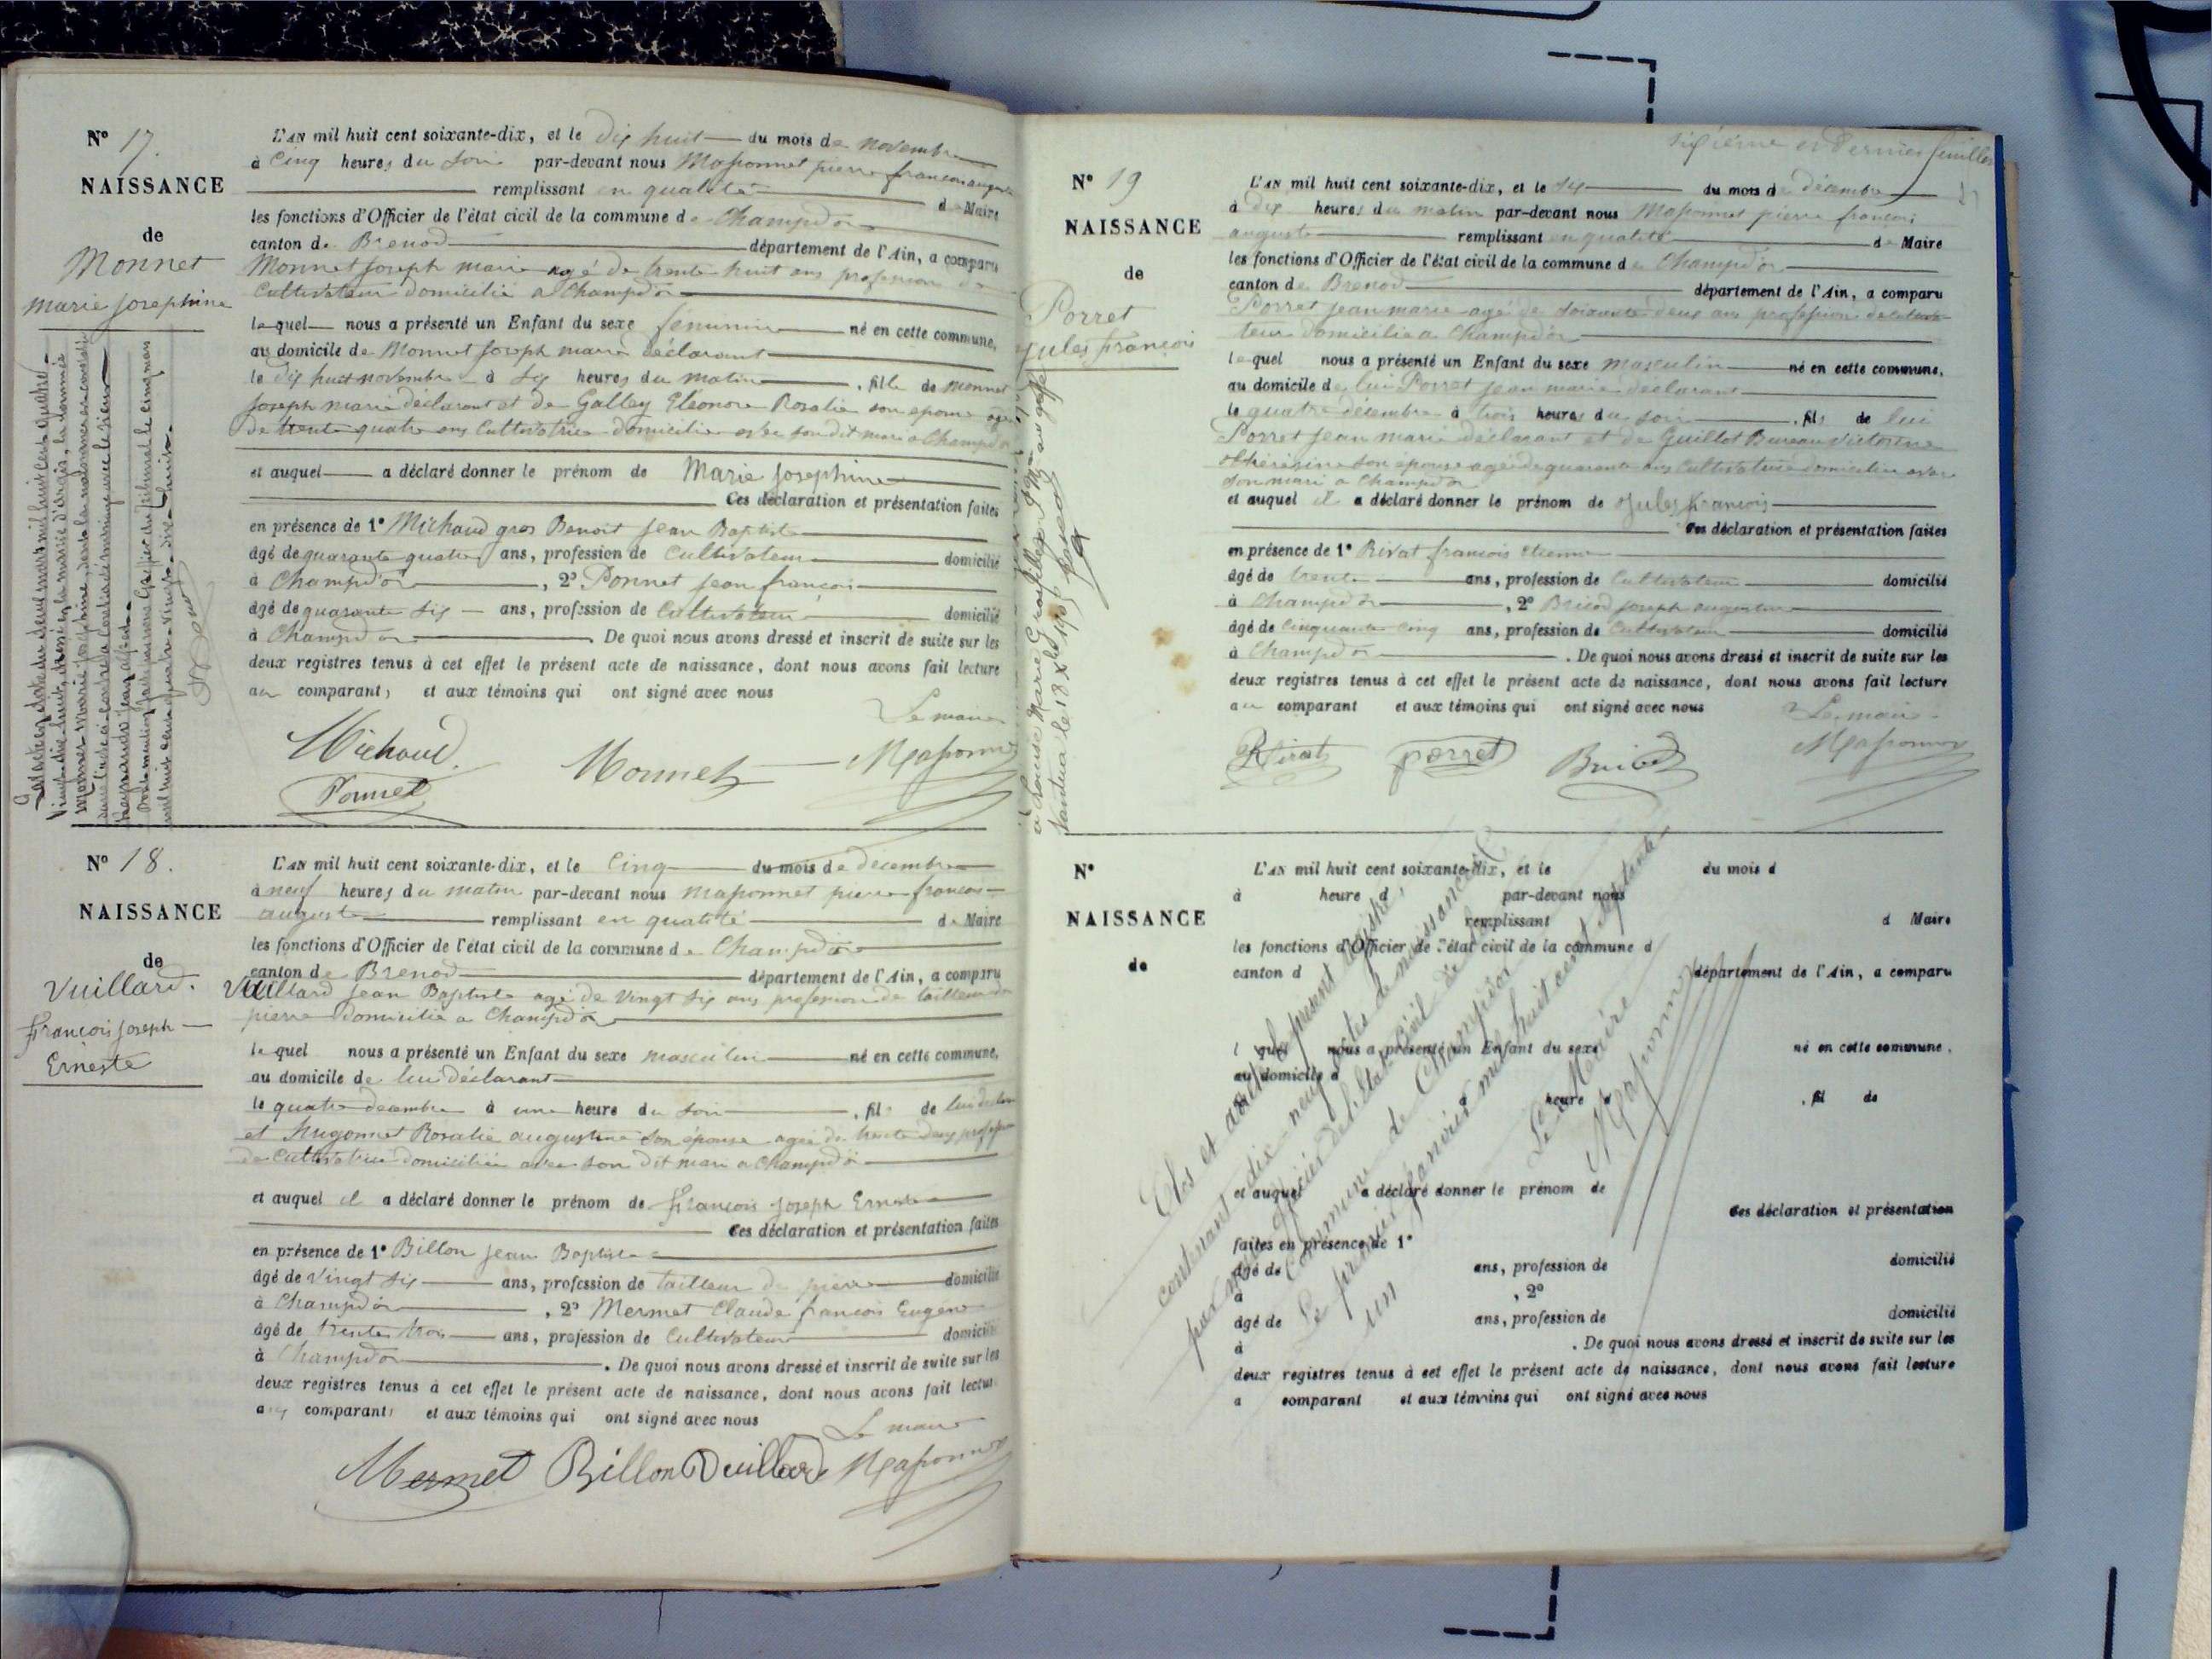 N° 17.
NAISSANCE
de
Monnet
marie josephine
L'AN mil huit cent soixante-dix, et le dix huit du mois de novembre
à Cinq heures du soir par-devant nous Maponnet pierre françois auguste
remplissant en qualité de Maire
les fonctions d'Officier de l'état civil de la commune de Champdor
canton de Brenod département de l'Ain, a comparu
Monnet joseph marie agé de trente huit ans profession de
Cultivateur domicilié a Champdor
lequel nous a présenté un Enfant du sexe féminin né en cette commune,
au domicile de Monnet joseph marie déclarant
le dix huit novembre à six heures du matin, fille de monnet
joseph marie déclarant et de Galley Eleonore Rosalie son epouse agée
de trente quatre ans Cultivatrice domiciliée avec son dit mari a Champdor
et auquel a déclaré donner le prénom de Marie Josephine
Ces déclaration et présentation faites
en présence de 1° Michaud gros Benoit Jean Baptiste
âgé de quarante quatre ans, profession de Cultivateur domicilié
à Champdor, 2° Ponnet jean françois
âgé de quarante six ans, profession de Cultivateur domicilié
à Champdor. De quoi nous avons dressé et inscrit de suite sur les
deux registres tenus à cet effet le présent acte de naissance, dont nous avons fait lecture
au comparant, et aux témoins qui ont signé avec nous
Le maire
Michaud. Monnet Maponnet
Ponnet
N° 18.
NAISSANCE
de
Vuillard.
François joseph
Erneste
L'AN mil huit cent soixante-dix, et le Cinq du mois de décembre
à neuf heures du matin par-devant nous maponnet pierre françois
auguste remplissant en qualité de Maire
les fonctions d'Officier de l'état civil de la commune de Champdor
canton de Brenod département de l'Ain, a comparu
Vuillard jean Baptiste agé de vingt six ans profession de tailleur de
pierre domicilié a Champdor
lequel nous a présenté un Enfant du sexe masculin né en cette commune,
au domicile de lui déclarant
le quatre décembre à une heure du soir, fils de lui déclarant
et Hugonnet Rosalie augustine son épouse agée de trente deux profession
de Cultivatrice domiciliée avec son dit mari a Champdor
et auquel il a déclaré donner le prénom de François Joseph Erneste
Ces déclaration et présentation faites
en présence de 1° Billon Jean Baptiste
âgé de vingt six ans, profession de tailleur de pierre domicilié
à Champdor, 2° Mermet Claude françois Eugène
âgé de trente trois ans, profession de Cultivateur domicilié
à Champdor. De quoi nous avons dressé et inscrit de suite sur les
deux registres tenus à cet effet le présent acte de naissance, dont nous avons fait lecture
aux comparants et aux témoins qui ont signé avec nous
Le maire
Mermet Billon Vuillard Maponnet
sixième et dernier feuillet
N° 19
NAISSANCE
de
Porret
jules françois
L'AN mil huit cent soixante-dix, et le six du mois de décembre
à dix heures du matin par-devant nous Maponnet pierre françois
auguste remplissant en qualité de Maire
les fonctions d'Officier de l'état civil de la commune de Champdor
canton de Brenod département de l'Ain, a comparu
Porret jean marie agé de soixante deux ans profession de cultiva-
teur domicilié a Champdor
lequel nous a présenté un Enfant du sexe masculin né en cette commune,
au domicile de lui Porret jean marie déclarant
le quatre décembre à trois heures du soir, fils de lui
Porret jean marie déclarant et de Guillot Bureau Victorine
Thérésine son épouse agée de quarante ans Cultivatrice domiciliée avec
son mari a Champdor
et auquel il a déclaré donner le prénom de Jules François
Ces déclaration et présentation faites
en présence de 1° Rivat françois Etienne
âgé de trente ans, profession de Cultivateur domicilié
à Champdor, 2° Bricod joseph augustin
âgé de Cinquante Cinq ans, profession de Cultivateur domicilié
à Champdor. De quoi nous avons dressé et inscrit de suite sur les
deux registres tenus à cet effet le présent acte de naissance, dont nous avons fait lecture
au comparant et aux témoins qui ont signé avec nous
Le maire
Rivat porret Bricod Maponnet
N°
NAISSANCE
de
L'AN mil huit cent soixante-dix, et le du mois d
à heure d par-devant nous
remplissant d Maire
les fonctions d'Officier de l'état civil de la commune d
canton d département de l'Ain, a comparu
l quel nous a présenté un Enfant du sexe né en cette commune,
au domicile d
à heure d, fil de
et auquel a déclaré donner le prénom de
Ces déclaration et présentation
faites en présence de 1°
âgé de ans, profession de domicilié
à, 2°
âgé de ans, profession de domicilié
à. De quoi nous avons dressé et inscrit de suite sur les
deux registres tenus à cet effet le présent acte de naissance, dont nous avons fait lecture
a comparant et aux témoins qui ont signé avec nous
Clos et arrêté le présent registre,
contenant dix-neuf actes de naissance
par nous officier de l'état Civil de la
Commune de Champdor
Le premier janvier mil huit cent septante
un
Le Maire
Maponnet